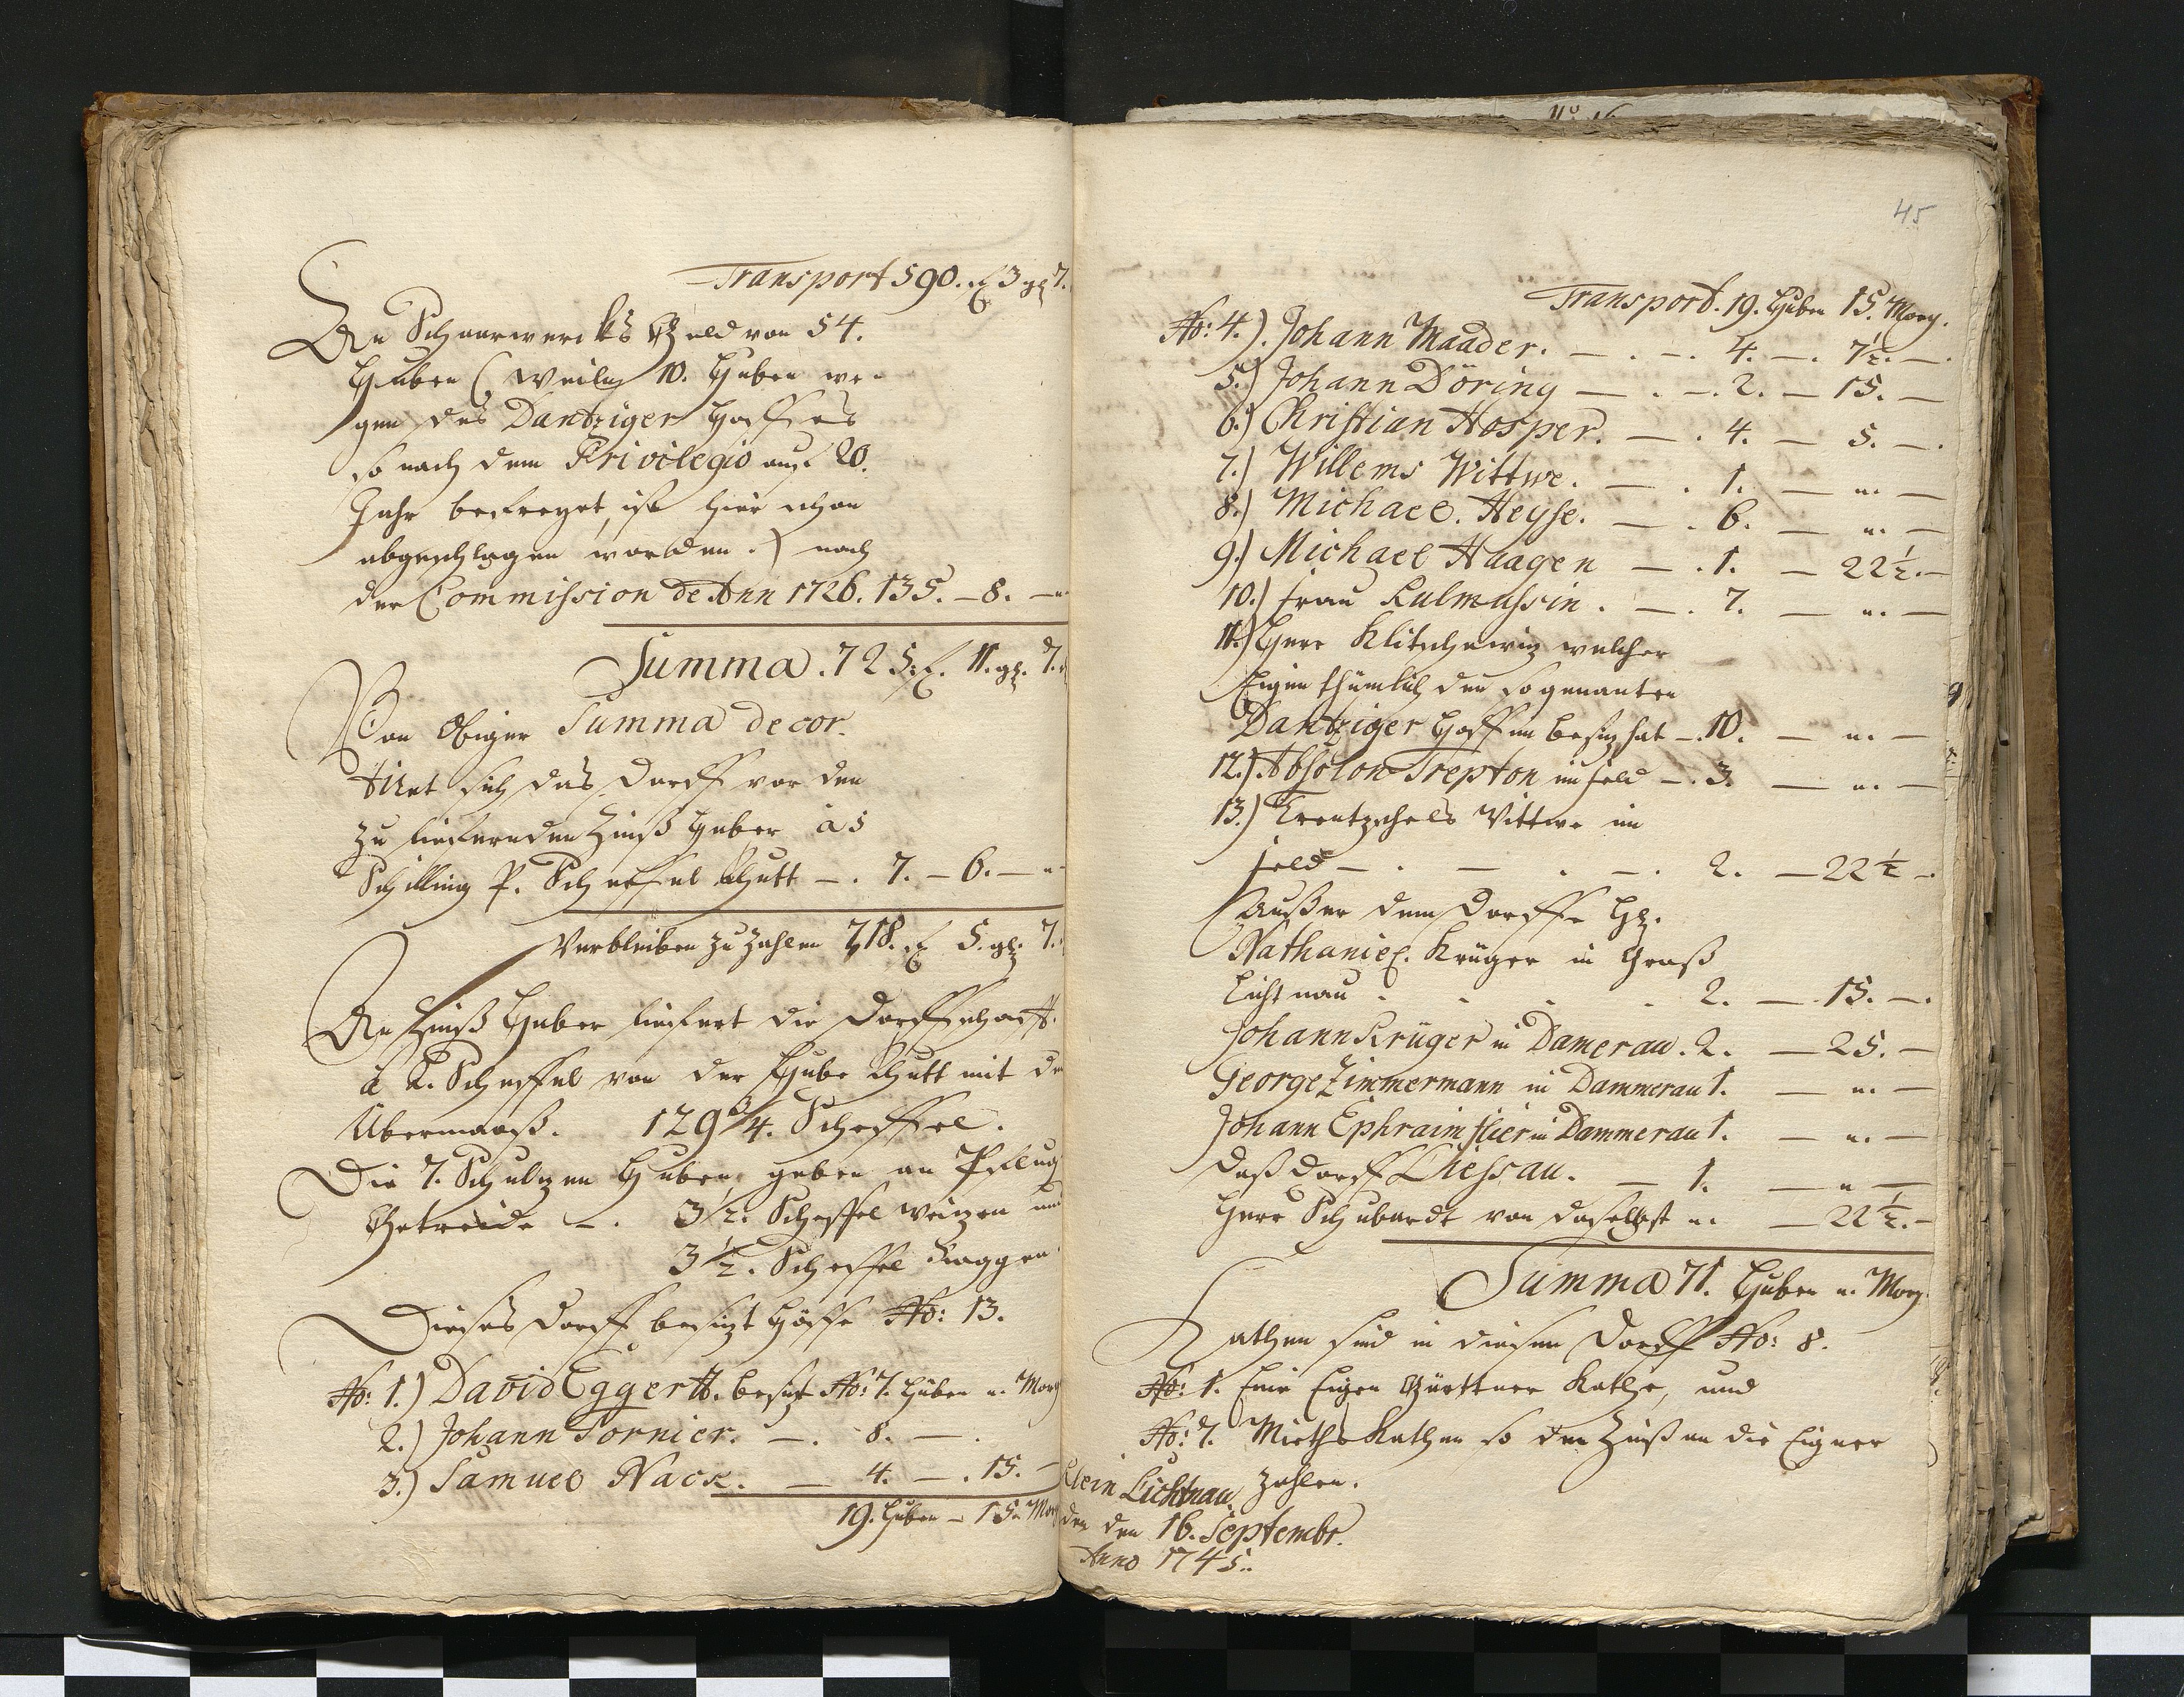 Transport 590. f 3 gl 7.
An Schaarwercks Geld von 54.
Huben (weilen 10. Huben we-
gen des Dantziger Hoffes
so nach dem Privilegio auf 20.
Jahr befreyet, ist hier schon
abgeschlagen worden.) nach
der Commission de Ann 1726. 135. — 8. —
Summa. 725. f. 11. gl. 7.
Von obiger Summa decor-
tiret sich das Dorff vor den
zu liefernden Zinß Haber à 5
Schilling P. Scheffel Schutt —. 7. — 6. —
Verbleiben zu zahlen 718. f 5. gl. 7.
An Zinß Haber liefert die Dorffschafft
à 2. Scheffel von der Hube Schutt mit de
Übermaaß. 129 3/4. Scheffel.
Die 7. Schulzen Huben geben an Pflug
Getreide —. 3 1/2. Scheffel Weizen und
3 1/2. Scheffel Roggen.
Dieses Dorff besizt Höffe No: 13.
No: 1.) David Eggert. besizt No: 7. Huben u. Morg
2.) Johann Tornier. —. 8. —.
3.) Samuel Nack. — 4. —. 15. —
19. Huben — 15. Morg
45
Transport. 19. Huben 15. Morg.
No: 4.). Johann Maader. —. —. 4. —. 7 1/2. —.
5.) Johann Döring —. —. 2. — 15. —
6.) Christian Hosper. —. 4. — 5. —.
7.) Willems Wittwe. —. 1. — ". —
8.) Michael. Heyse. —. 6. — ". —
9.) Michael Haagen —. 1. — 22 1/2. —
10.) Frau Kulmussin. —. 7. — ". —
11.) Herr Klitschewiz welcher
Eigenthümlich den so genanten
Dantziger Hoff im besiz hat —. 10. — ". —
12.) Absolon Trepton im Feld —. 3. — ". —
13.) Wittwe im
Feld —. — . —. 2. — 22 1/2 —.
Außer dem Dorffe H.
Nathaniel. Krüger in Groß
Lichtnau . . . . 2. — 15. —.
Johann Krüger in Damerau. 2. — 25. —
George Zimmermann in Dammerau 1. — ". —
Johann Ephraim Flier in Dammerau 1. — ". —
Daß Dorff Liessau. — 1. — " —
Herr Schubardt von daselbst ". — 22 1/2. —
Summa 71. Huben u. Morg.
Kathen sind in diesem Dorff No: 8.
No: 1. Eine Eigen Gärttner Kathe, und
No: 7. Mieths Kathen so den Zinß an die Eigner
zahlen.
Klein Lichtnau
den den 16. Septembr.
Anno 1745.